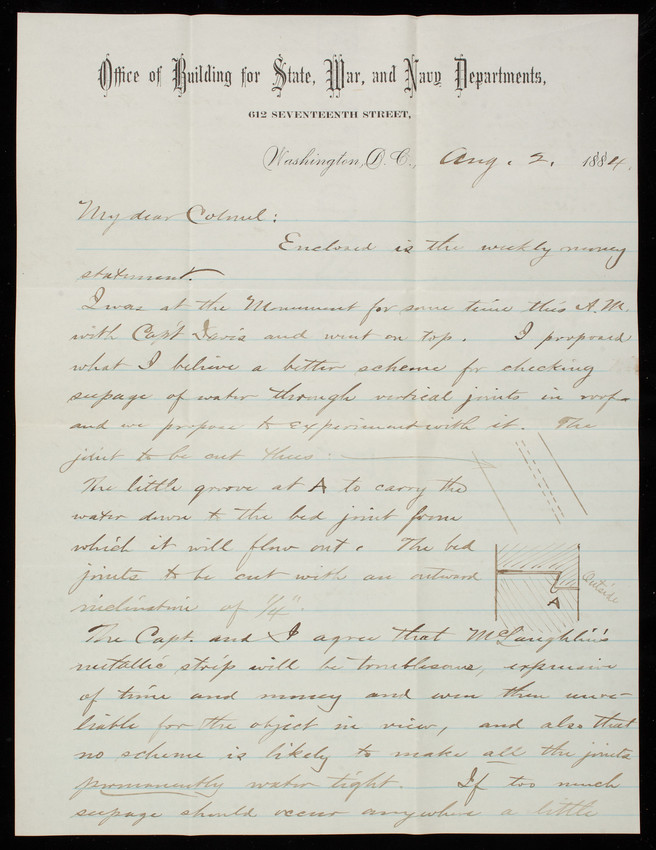 Office of Building for State, War, and Navy Departments,
612 SEVENTEENTH STREET,
Washington, D.C., Aug. 2. 1884.
My dear Colonel:
Enclosed is the weekly money
statement.
I was at the Monument for some time this A.M.
with Capt Davis and went on top. I proposed
what I believe a better scheme for checking
seepage of water through vertical joints in roof
and we propose to experiment with it. The
joint to be cut thus:
The little groove at A to carry the
water down to the bed joint from
which it will flow out. The bed
joints to be cut with an outward
inclination of 1/4".
A
Outside
The Capt. and I agree that McLaughlin's
metallic strip will be troublesome, expensive
of time and money and even then unre-
liable for the object in view, and also that
no scheme is likely to make all the joints
permanently water tight. If too much
seepage should occur anywhere a little